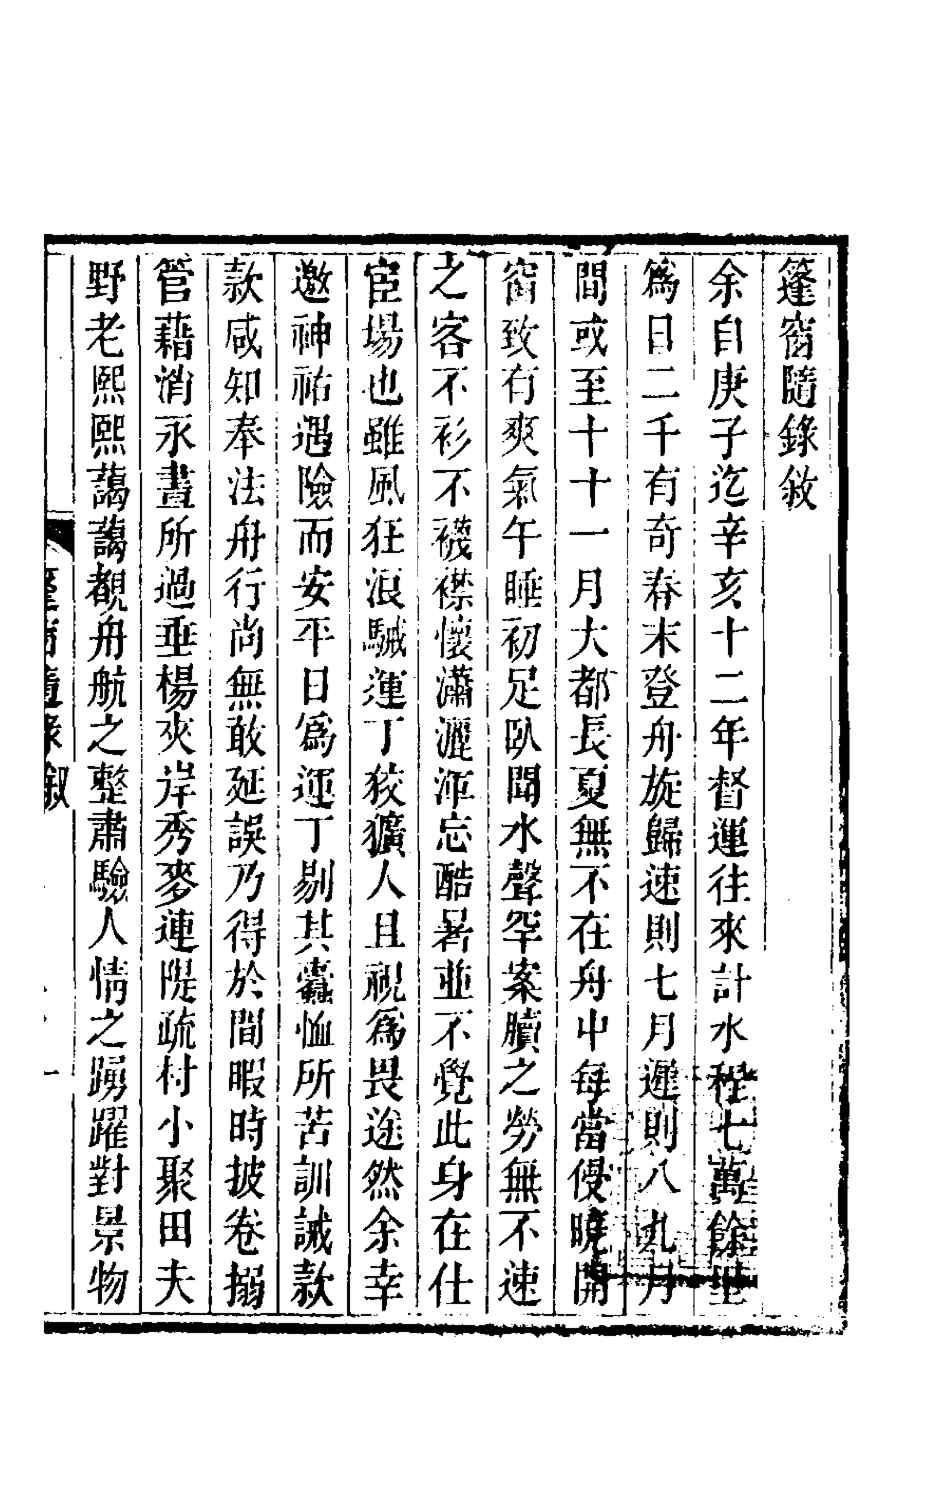 篷窗隨錄敘
余自庚子迄辛亥十二年督運往來計水程七萬餘里
爲日二千有奇春末登舟旋歸速則七月遲則八九月
間或至十十一月大都長夏無不在舟中每當侵曉開
窗致有爽氣午睡初足臥聞水聲罕案牘之勞無不速
之客不衫不襪襟懷瀟灑渾忘酷暑並不覺此身在仕
宦場也雖風狂浪駴運丁狡獷人且視爲畏途然余幸
邀神祐遇險而安平日爲運丁剔其蠹恤所苦訓誡款
款咸知奉法舟行尚無敢延誤乃得於間暇時披卷搦
管藉消永晝所過垂楊夾岸秀麥連隄疏村小聚田夫
野老熙熙藹藹覩舟航之整肅驗人情之踴躍對景物
篷窗隨錄 敘
一